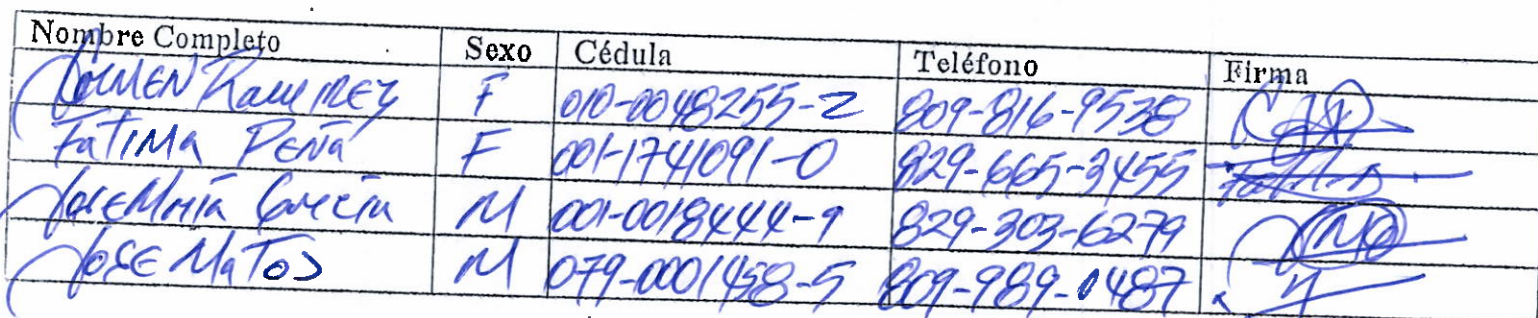 Nombre Completo Sexo Cédula Teléfono Firma
Carmen Ramirez F 010-0048255-2 809-816-9538
Fatima Peña F 001-1741091-0 829-665-3455
Jose Maria Garcia M 001-0018444-9 829-303-6279
Jose Matos M 079-0001458-5 809-989-0487